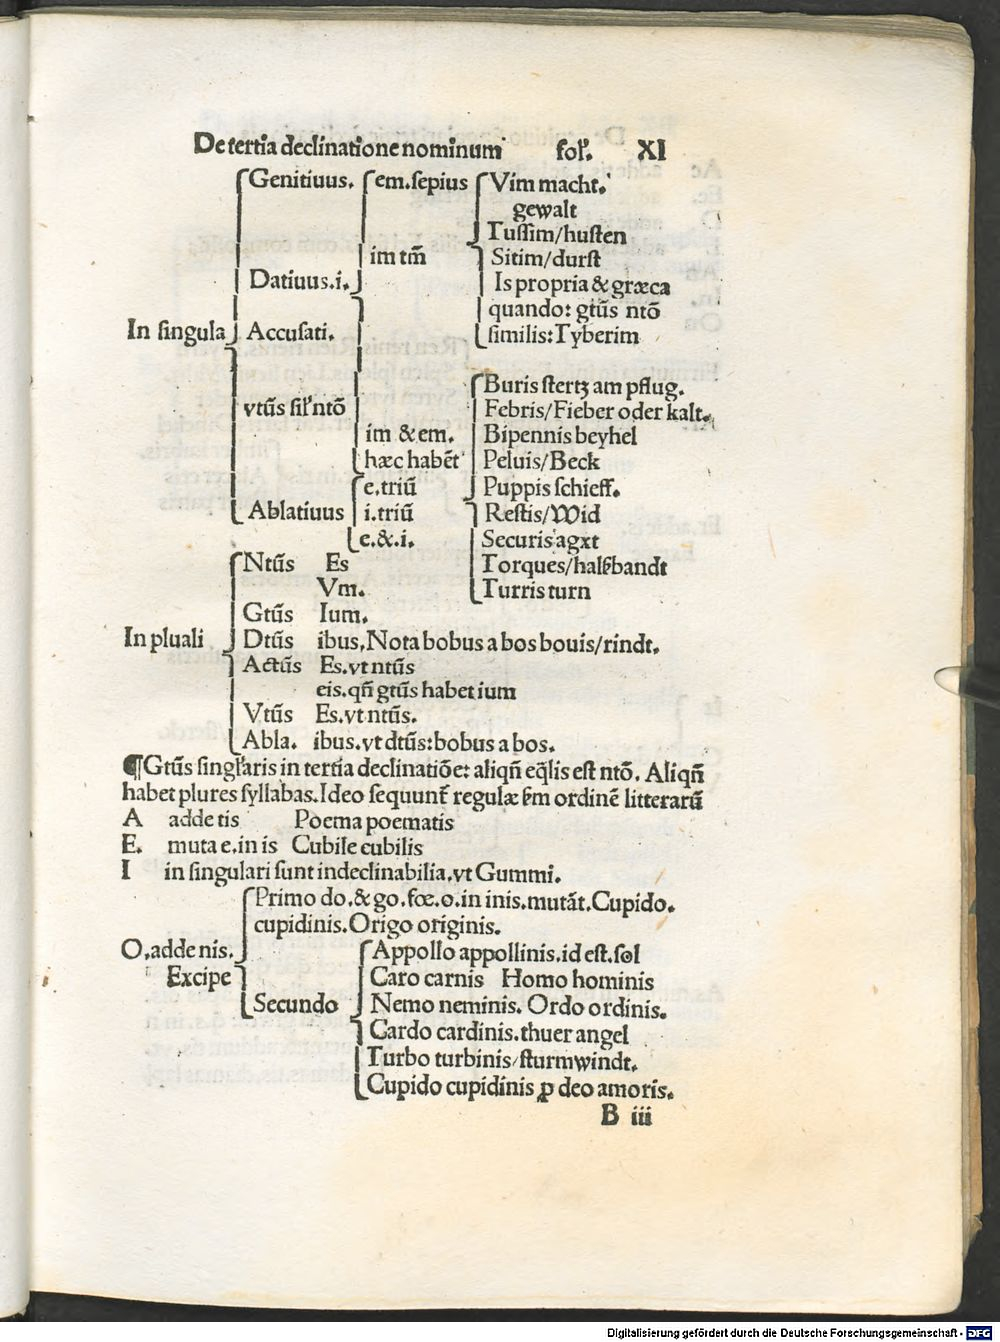 De tertia declinatione nominum fol. XI
Genitiuus. em. sepius Vim macht.
gewalt
Tussim/husten
im tm̄ Sitim/durst
Datiuus.i. Is propria & græca
quando: gtūs ntō
In singula Accusati. similis: Tyberim
Buris stertz am pflug.
vtūs sil' ntō Febris/Fieber oder kalt.
im & em. Bipennis beyhel
hæc habēt Peluis/Beck
e.triū Puppis schieff.
Ablatiuus i.triū Restis/Wid
e.&.i. Securis agxt
Ntūs Es Torques/halsbandt
Vm. Turris turn
Gtūs Ium.
In pluali Dtūs ibus. Nota bobus a bos bouis/rindt.
Actūs Es. vt ntūs
eis. qn̄ gtūs habet ium
Vtūs Es. vt ntūs.
Abla. ibus. vt dtūs: bobus a bos.
¶Gtūs singl'aris in tertia declinatiōe: aliqn̄ eq̄lis est ntō. Aliqn̄
habet plures syllabas. Ideo sequunt̄ regulæ s̄m ordinē litterarū
A adde tis Poema poematis
E. muta e. in is Cubile cubilis
I in singulari sunt indeclinabilia. vt Gummi.
Primo do. & go. fœ. o. in inis. mutāt. Cupido.
cupidinis. Origo originis.
O. adde nis. Appollo appollinis. id est. sol
Excipe Caro carnis Homo hominis
Secundo Nemo neminis. Ordo ordinis.
Cardo cardinis. thuer angel
Turbo turbinis/sturmwindt.
Cupido cupidinis ꝓ deo amoris.
B iii
Digitalisierung gefördert durch die Deutsche Forschungsgemeinschaft - DFG